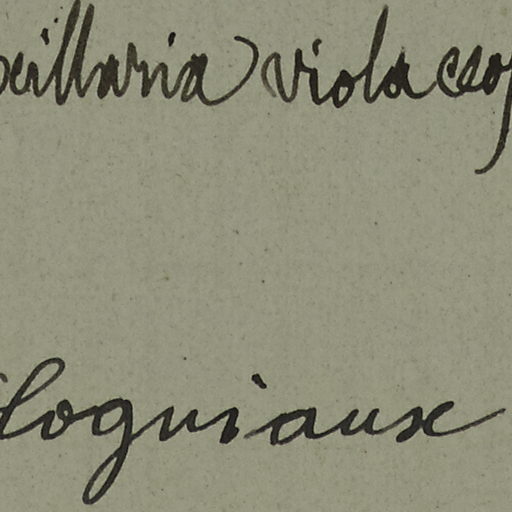 xillaria violaceop
loguiaux